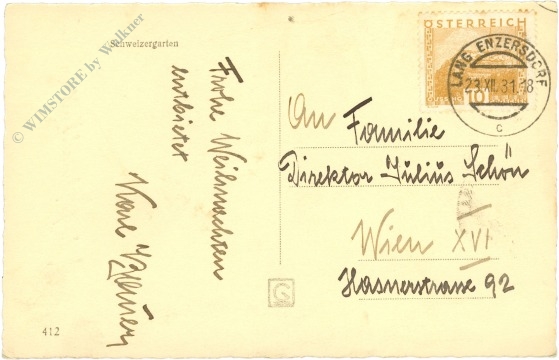 © WIMSTORE by Walkner
Schweizergarten
Frohe Weihnachten
entbietet
Karl
412
ÖSTERREICH
10
LANG ENZERSDORF
23.XII.31.18
c
An Familie
Direktor Julius Schön
Wien XVI
Hasnerstrasse 92